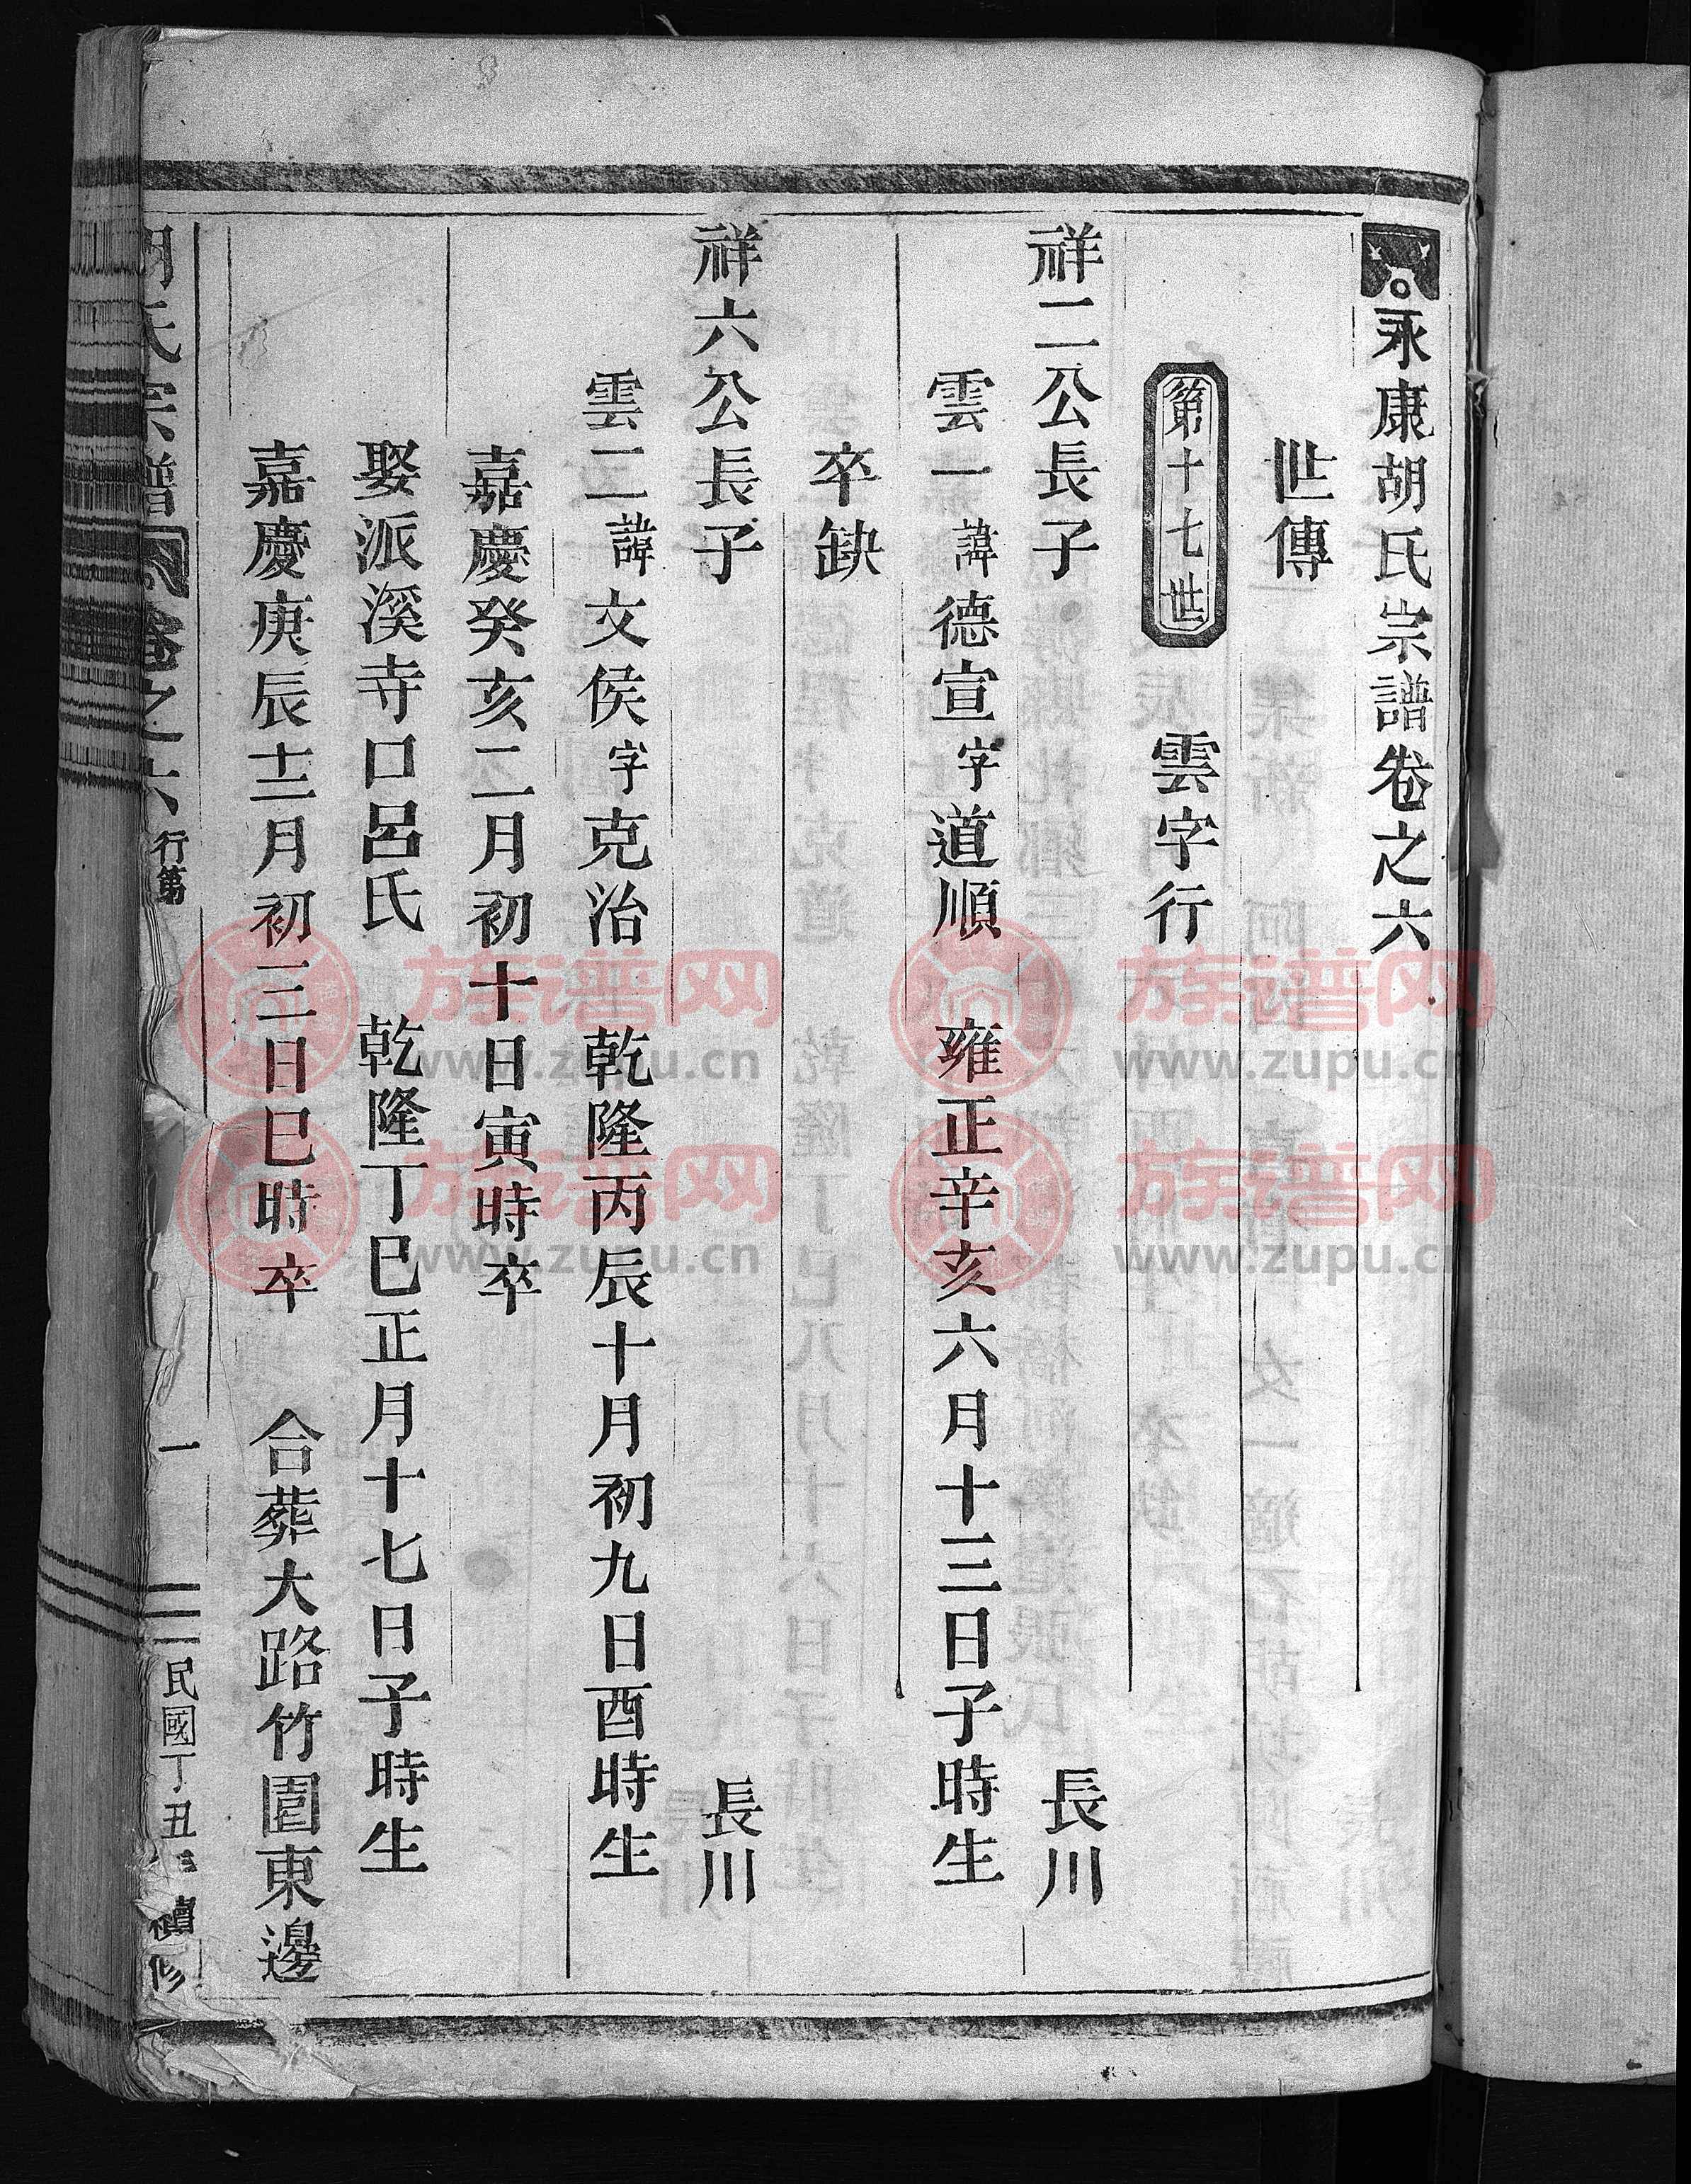 永康胡氏宗譜卷之六
世傳
第十七世 雲字行
祥二公長子 長川
雲一諱德宣字道順 雍正辛亥六月十三日子時生
卒缺
祥六公長子 長川
雲二諱文侯字克治 乾隆丙辰十月初九日酉時生
嘉慶癸亥二月初十日寅時卒
娶派溪寺口呂氏 乾隆丁巳正月十七日子時生
嘉慶庚辰十二月初三日巳時卒 合葬大路竹園東邊
胡氏宗譜 卷之六 行第 一 民國丁丑年續修
族谱网
www.zupu.cn
族谱网
www.zupu.cn
族谱网
www.zupu.cn
族谱网
www.zupu.cn